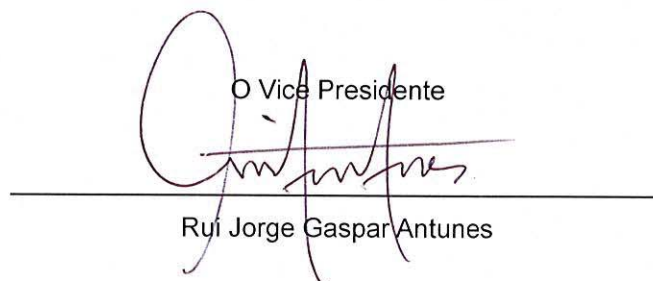 O Vice Presidente
Rui Jorge Gaspar Antunes